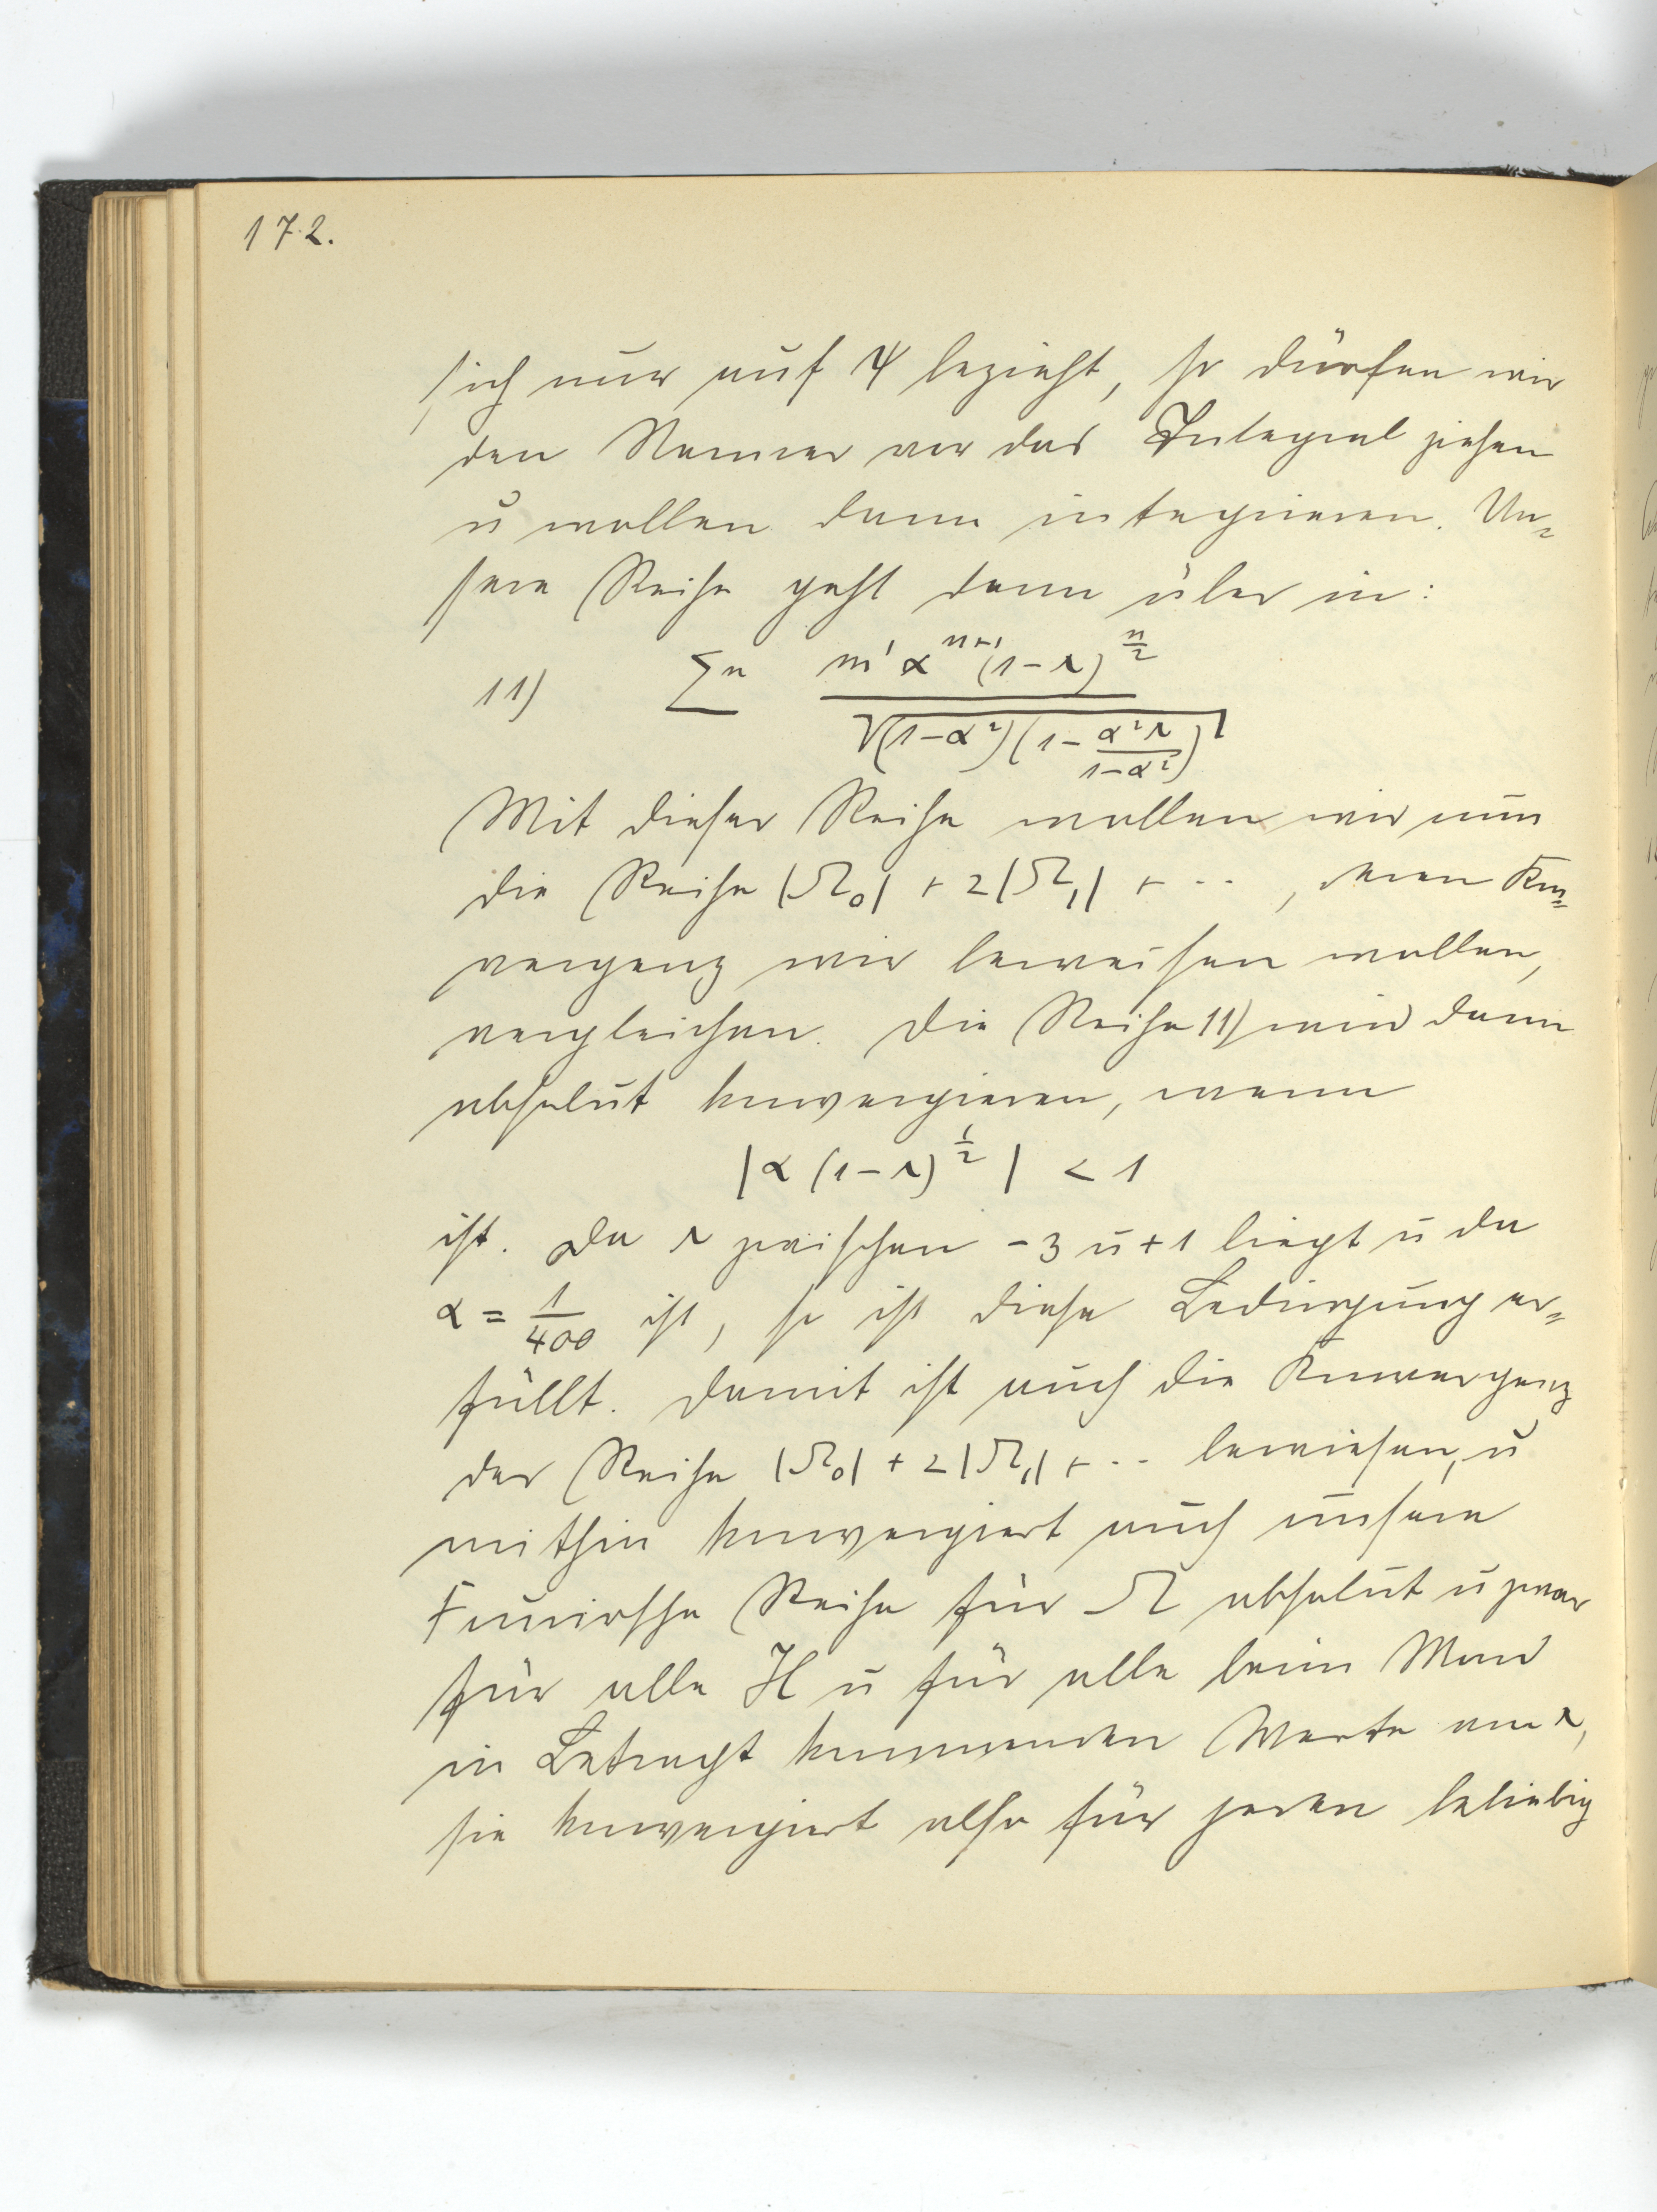 172.
sich nur auf ψ bezieht, so dürfen wir
den Nenner vor das Integral ziehen
u wollen dann integrieren. Un=
sere Reihe geht dann über in:
11) Σⁿ m' α^{n+1} (1-s)^{n/2} / √((1-α²)(1-α²s/(1-α²)))
Mit dieser Reihe wollen wir nun
die Reihe |Ω₀| + 2|Ω₁| + ·· , deren Kon=
vergenz wir beweisen wollen,
vergleichen. Die Reihe 11) wird dann
absolut konvergieren, wenn
|α (1-s)^{1/2}| < 1
ist. Da s zwischen -3 u +1 liegt u da
α = 1/400 ist, so ist diese Bedingung er=
füllt. Damit ist auch die Konvergenz
der Reihe |Ω₀| + 2|Ω₁| + ·· bewiesen, u
mithin konvergiert auch unsere
Fouriersche Reihe für Ω absolut u zwar
für alle H u für alle beim Mond
in Betracht kommenden Werte von s,
sie konvergiert also für jeden beliebig